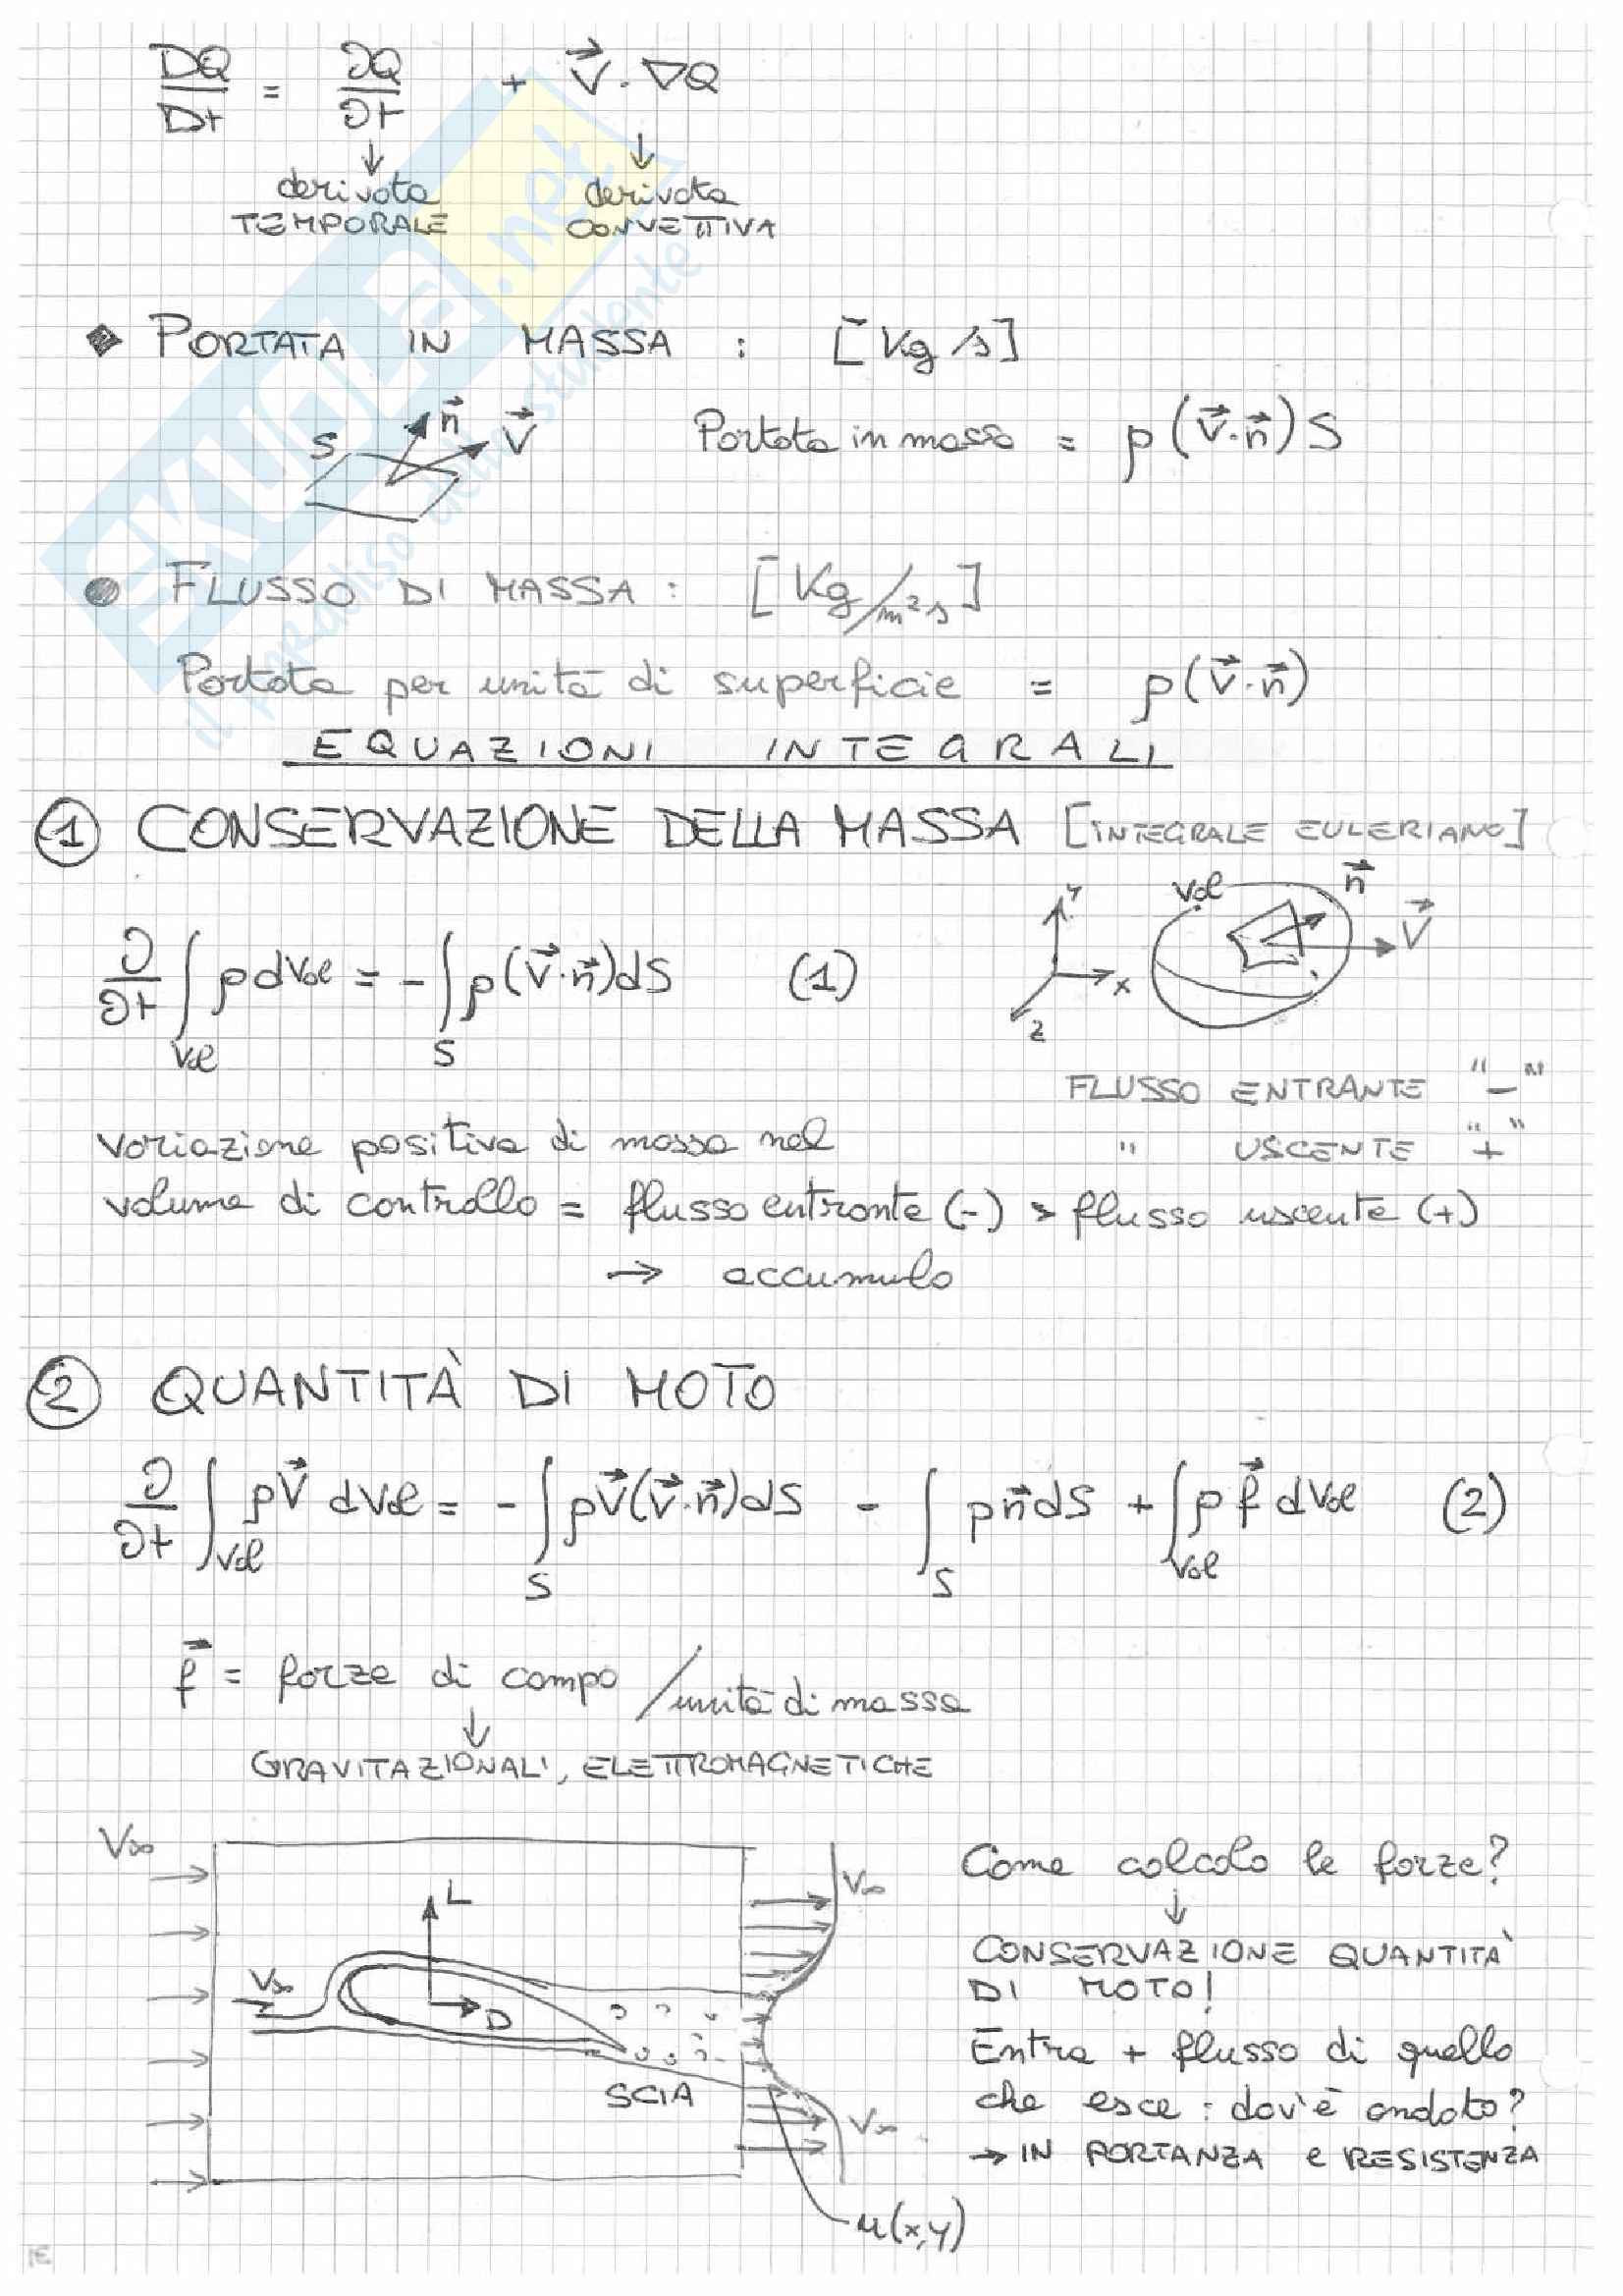 DQ/Dt = ∂Q/∂t + V⃗ · ∇Q
↓ ↓
derivata derivata
TEMPORALE CONVETTIVA
◆ PORTATA IN MASSA : [Kg/s]
S n⃗ V⃗ Portata in massa = ρ(V⃗·n⃗)S
● FLUSSO DI MASSA : [Kg/m²s]
Portata per unità di superficie = ρ(V⃗·n⃗)
EQUAZIONI INTEGRALI
① CONSERVAZIONE DELLA MASSA [INTEGRALE EULERIANO]
∂/∂t ∫Vol ρ dVol = - ∫S ρ(V⃗·n⃗)dS (1)
Y X Z Vol n⃗ V⃗
FLUSSO ENTRANTE "-"
" USCENTE "+"
variazione positiva di massa nel
volume di controllo = flusso entrante (-) > flusso uscente (+)
→ accumulo
② QUANTITÀ DI MOTO
∂/∂t ∫Vol ρV⃗ dVol = - ∫S ρV⃗(V⃗·n⃗)dS - ∫S pn⃗dS + ∫Vol ρ f⃗ dVol (2)
f⃗ = forze di campo /unità di massa
↓
GRAVITAZIONALI, ELETTROMAGNETICHE
V∞
L
V∞
D
SCIA
V∞
V∞
u(x,y)
Come calcolo le forze?
↓
CONSERVAZIONE QUANTITÀ
DI MOTO!
Entra + flusso di quello
che esce : dov'è andato?
→ IN PORTANZA e RESISTENZA
SKUOLA.net
il paradiso dello studente